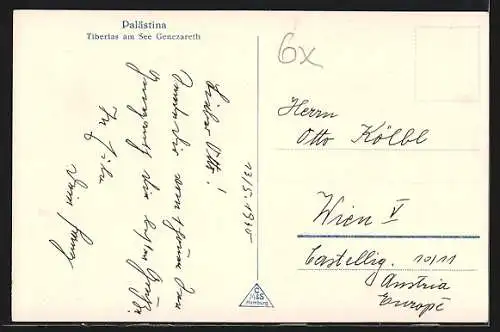 Palästina
Tiberias am See Genezareth
6x
13/5. 1935
Lieber Otto!
Sende Dir vom schönen See
Genezareth die besten Grüße.
Dein
Herrn
Otto Kölbl
Wien V
Castellig. 10/11
Austria
Europe
G
M&S
Hamburg